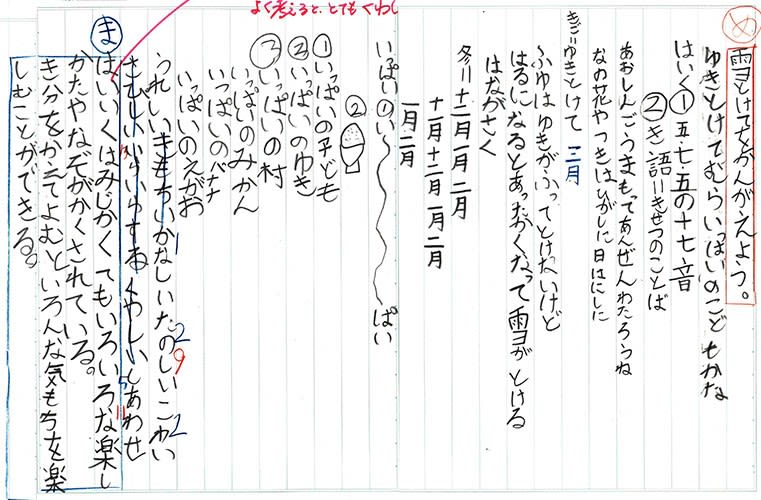 よく考えると、とてもくわし
め
雪とけてをかんがえよう。
ゆきとけてむらいっぱいのこどもかな
はいく①五・七・五の十七音
②き語=きせつのことば
あおしんごうまもってあんぜんわたろうね
なの花やつきはひがしに日はにしに
きご=ゆきとけて 三月
ふゆはゆきがふってとけないけど
はるになるとあったかくなって雪がとける
はながさく
冬=十二月一月二月
十一月十二月一月二月
一月二月
いっぱいのい〜ぱい
②
①いっぱいの子ども
②いっぱいのゆき
③いっぱいの村
いっぱいのみかん
いっぱいのバナナ
いっぱいのえがお
うれしいきもちいかなしいたのしいこわい
1 2 9 2
さびしいいらいらするくやしいしあわせ
3 5 11
ま
はいくはみじかくてもいろいろな楽し
かたやなぞがかくされている。
き分をかえてよむといろんな気もちを楽
しむことができる。